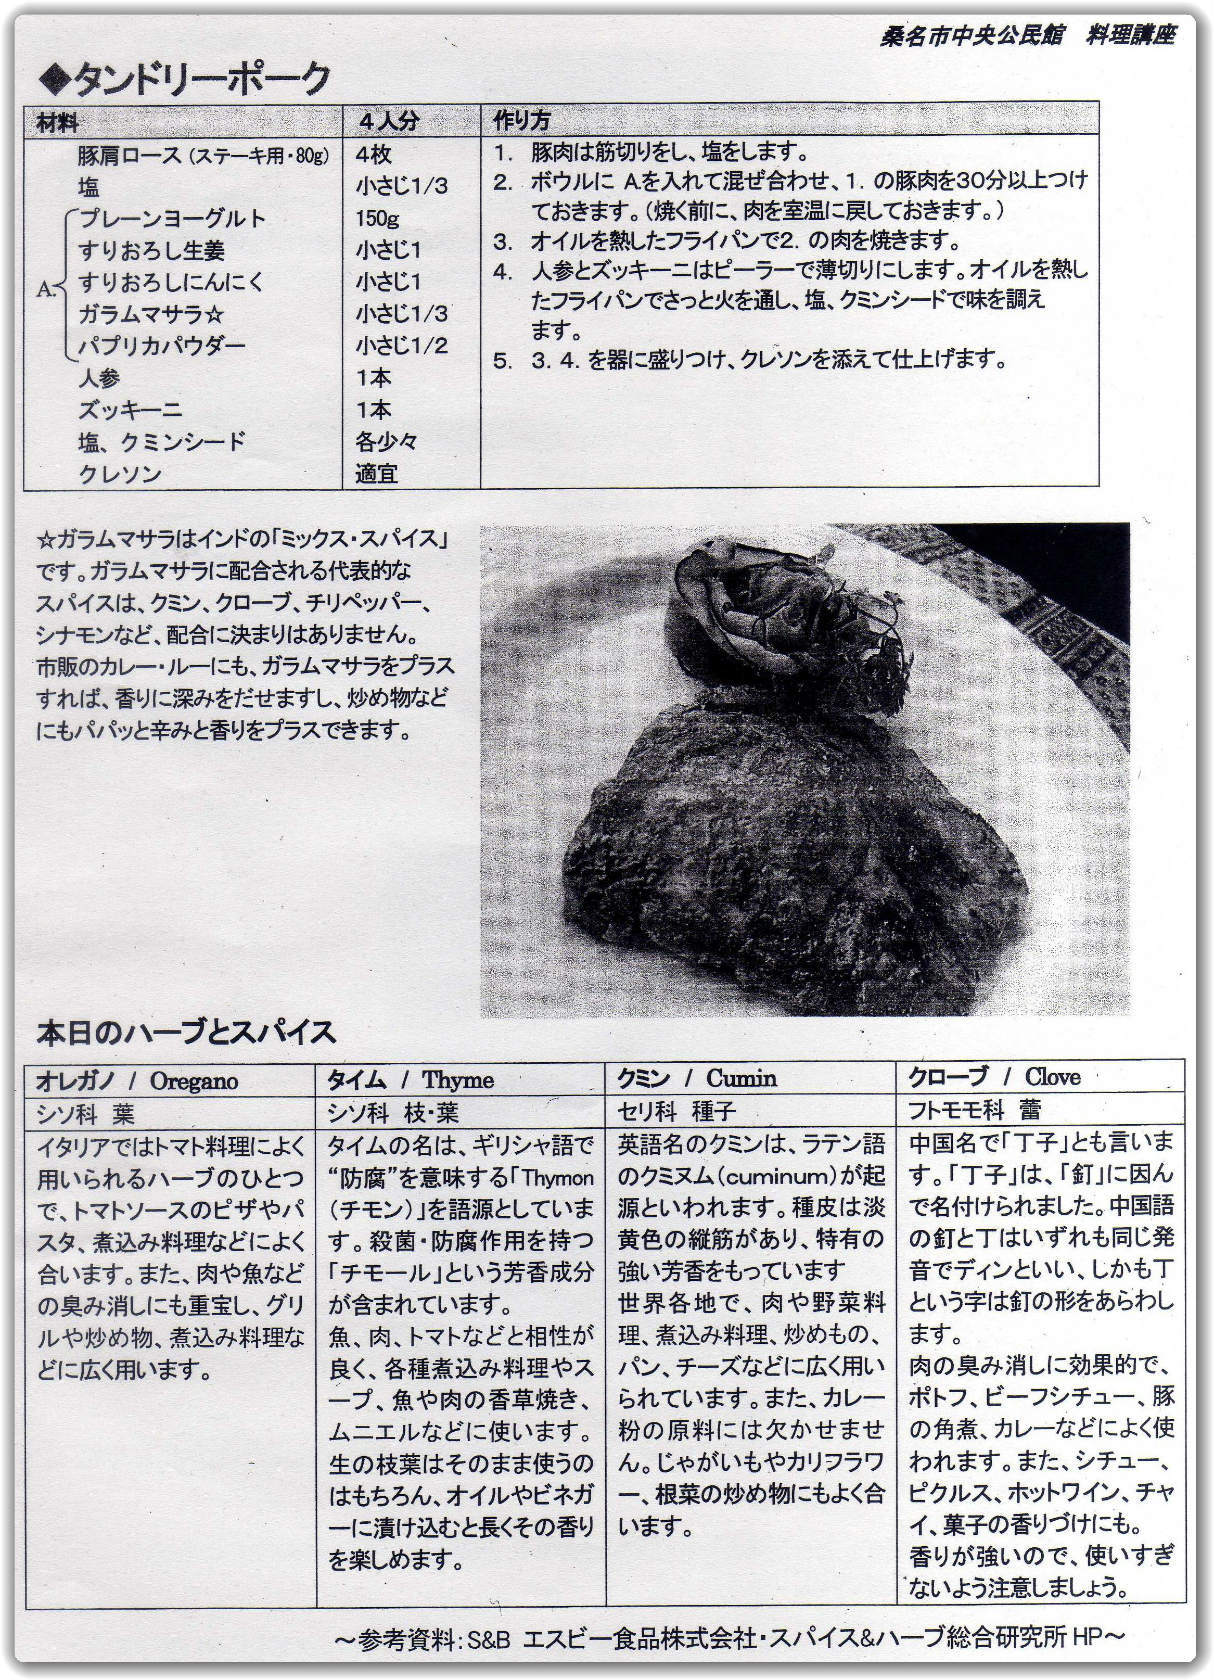 桑名市中央公民館　料理講座
◆タンドリーポーク
材料　４人分　作り方
豚肩ロース（ステーキ用・80g）　4枚
塩　小さじ1/3
A.
プレーンヨーグルト　150g
すりおろし生姜　小さじ1
すりおろしにんにく　小さじ1
ガラムマサラ☆　小さじ1/3
パプリカパウダー　小さじ1/2
人参　1本
ズッキーニ　1本
塩、クミンシード　各少々
クレソン　適宜
1.　豚肉は筋切りをし、塩をします。
2.　ボウルに A.を入れて混ぜ合わせ、1. の豚肉を30分以上つけ
ておきます。（焼く前に、肉を室温に戻しておきます。）
3.　オイルを熱したフライパンで2. の肉を焼きます。
4.　人参とズッキーニはピーラーで薄切りにします。オイルを熱し
たフライパンでさっと火を通し、塩、クミンシードで味を調え
ます。
5.　3. 4. を器に盛りつけ、クレソンを添えて仕上げます。
☆ガラムマサラはインドの「ミックス・スパイス」
です。ガラムマサラに配合される代表的な
スパイスは、クミン、クローブ、チリペッパー、
シナモンなど、配合に決まりはありません。
市販のカレー・ルーにも、ガラムマサラをプラス
すれば、香りに深みをだせますし、炒め物など
にもパパッと辛みと香りをプラスできます。
本日のハーブとスパイス
オレガノ / Oregano
シソ科　葉
イタリアではトマト料理によく
用いられるハーブのひとつ
で、トマトソースのピザやパ
スタ、煮込み料理などによく
合います。また、肉や魚など
の臭み消しにも重宝し、グリ
ルや炒め物、煮込み料理な
どに広く用います。
タイム / Thyme
シソ科　枝・葉
タイムの名は、ギリシャ語で
“防腐”を意味する「Thymon
（チモン）」を語源としていま
す。殺菌・防腐作用を持つ
「チモール」という芳香成分
が含まれています。
魚、肉、トマトなどと相性が
良く、各種煮込み料理やス
ープ、魚や肉の香草焼き、
ムニエルなどに使います。
生の枝葉はそのまま使うの
はもちろん、オイルやビネガ
ーに漬け込むと長くその香り
を楽しめます。
クミン / Cumin
セリ科　種子
英語名のクミンは、ラテン語
のクミヌム（cuminum）が起
源といわれます。種皮は淡
黄色の縦筋があり、特有の
強い芳香をもっています
世界各地で、肉や野菜料
理、煮込み料理、炒めもの、
パン、チーズなどに広く用い
られています。また、カレー
粉の原料には欠かせませ
ん。じゃがいもやカリフラワ
ー、根菜の炒め物にもよく合
います。
クローブ / Clove
フトモモ科　蕾
中国名で「丁子」とも言いま
す。「丁子」は、「釘」に因ん
で名付けられました。中国語
の釘と丁はいずれも同じ発
音でディンといい、しかも丁
という字は釘の形をあらわし
ます。
肉の臭み消しに効果的で、
ポトフ、ビーフシチュー、豚
の角煮、カレーなどによく使
われます。また、シチュー、
ピクルス、ホットワイン、チャ
イ、菓子の香りづけにも。
香りが強いので、使いすぎ
ないよう注意しましょう。
～参考資料：S&B エスビー食品株式会社・スパイス&ハーブ総合研究所 HP～